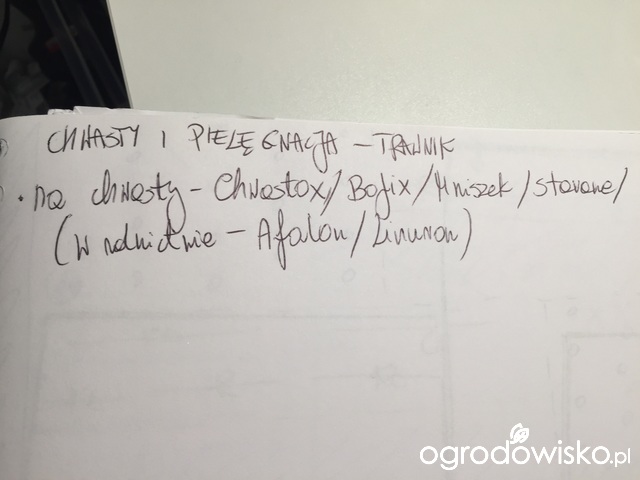 CHWASTY I PIELĘGNACJA - TRAWNIK
• na chwasty - Chwastox/Bofix/Mniszek/Starane/
(W rolnictwie - Afalon/Linuron)
ogrodowisko.pl